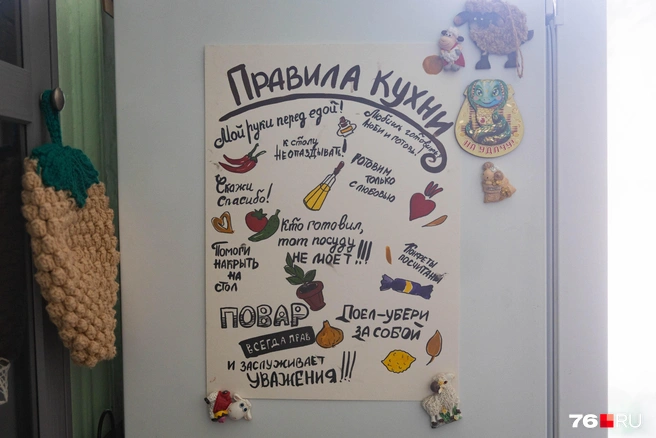 ПРАВИЛА КУХНИ
Мой руки перед едой!
Любишь готовить
люби и готовь!
к столу
НЕОПАЗДЫВАТЬ!
ГОТОВИМ
ТОЛЬКО
С ЛЮБОВЬЮ
Скажи
спасибо!
Кто готовил,
тот посуду
НЕ МОЕТ!!!
Помоги
НАКРЫТЬ
НА
СТОЛ
Конфеты
посчитаны
ПОВАР
ВСЕГДА ПРАВ
И ЗАСЛУЖИВАЕТ
УВАЖЕНИЯ!!!
ПОЕЛ-УБЕРИ
ЗА СОБОЙ
НА УДАЧУ
76.RU